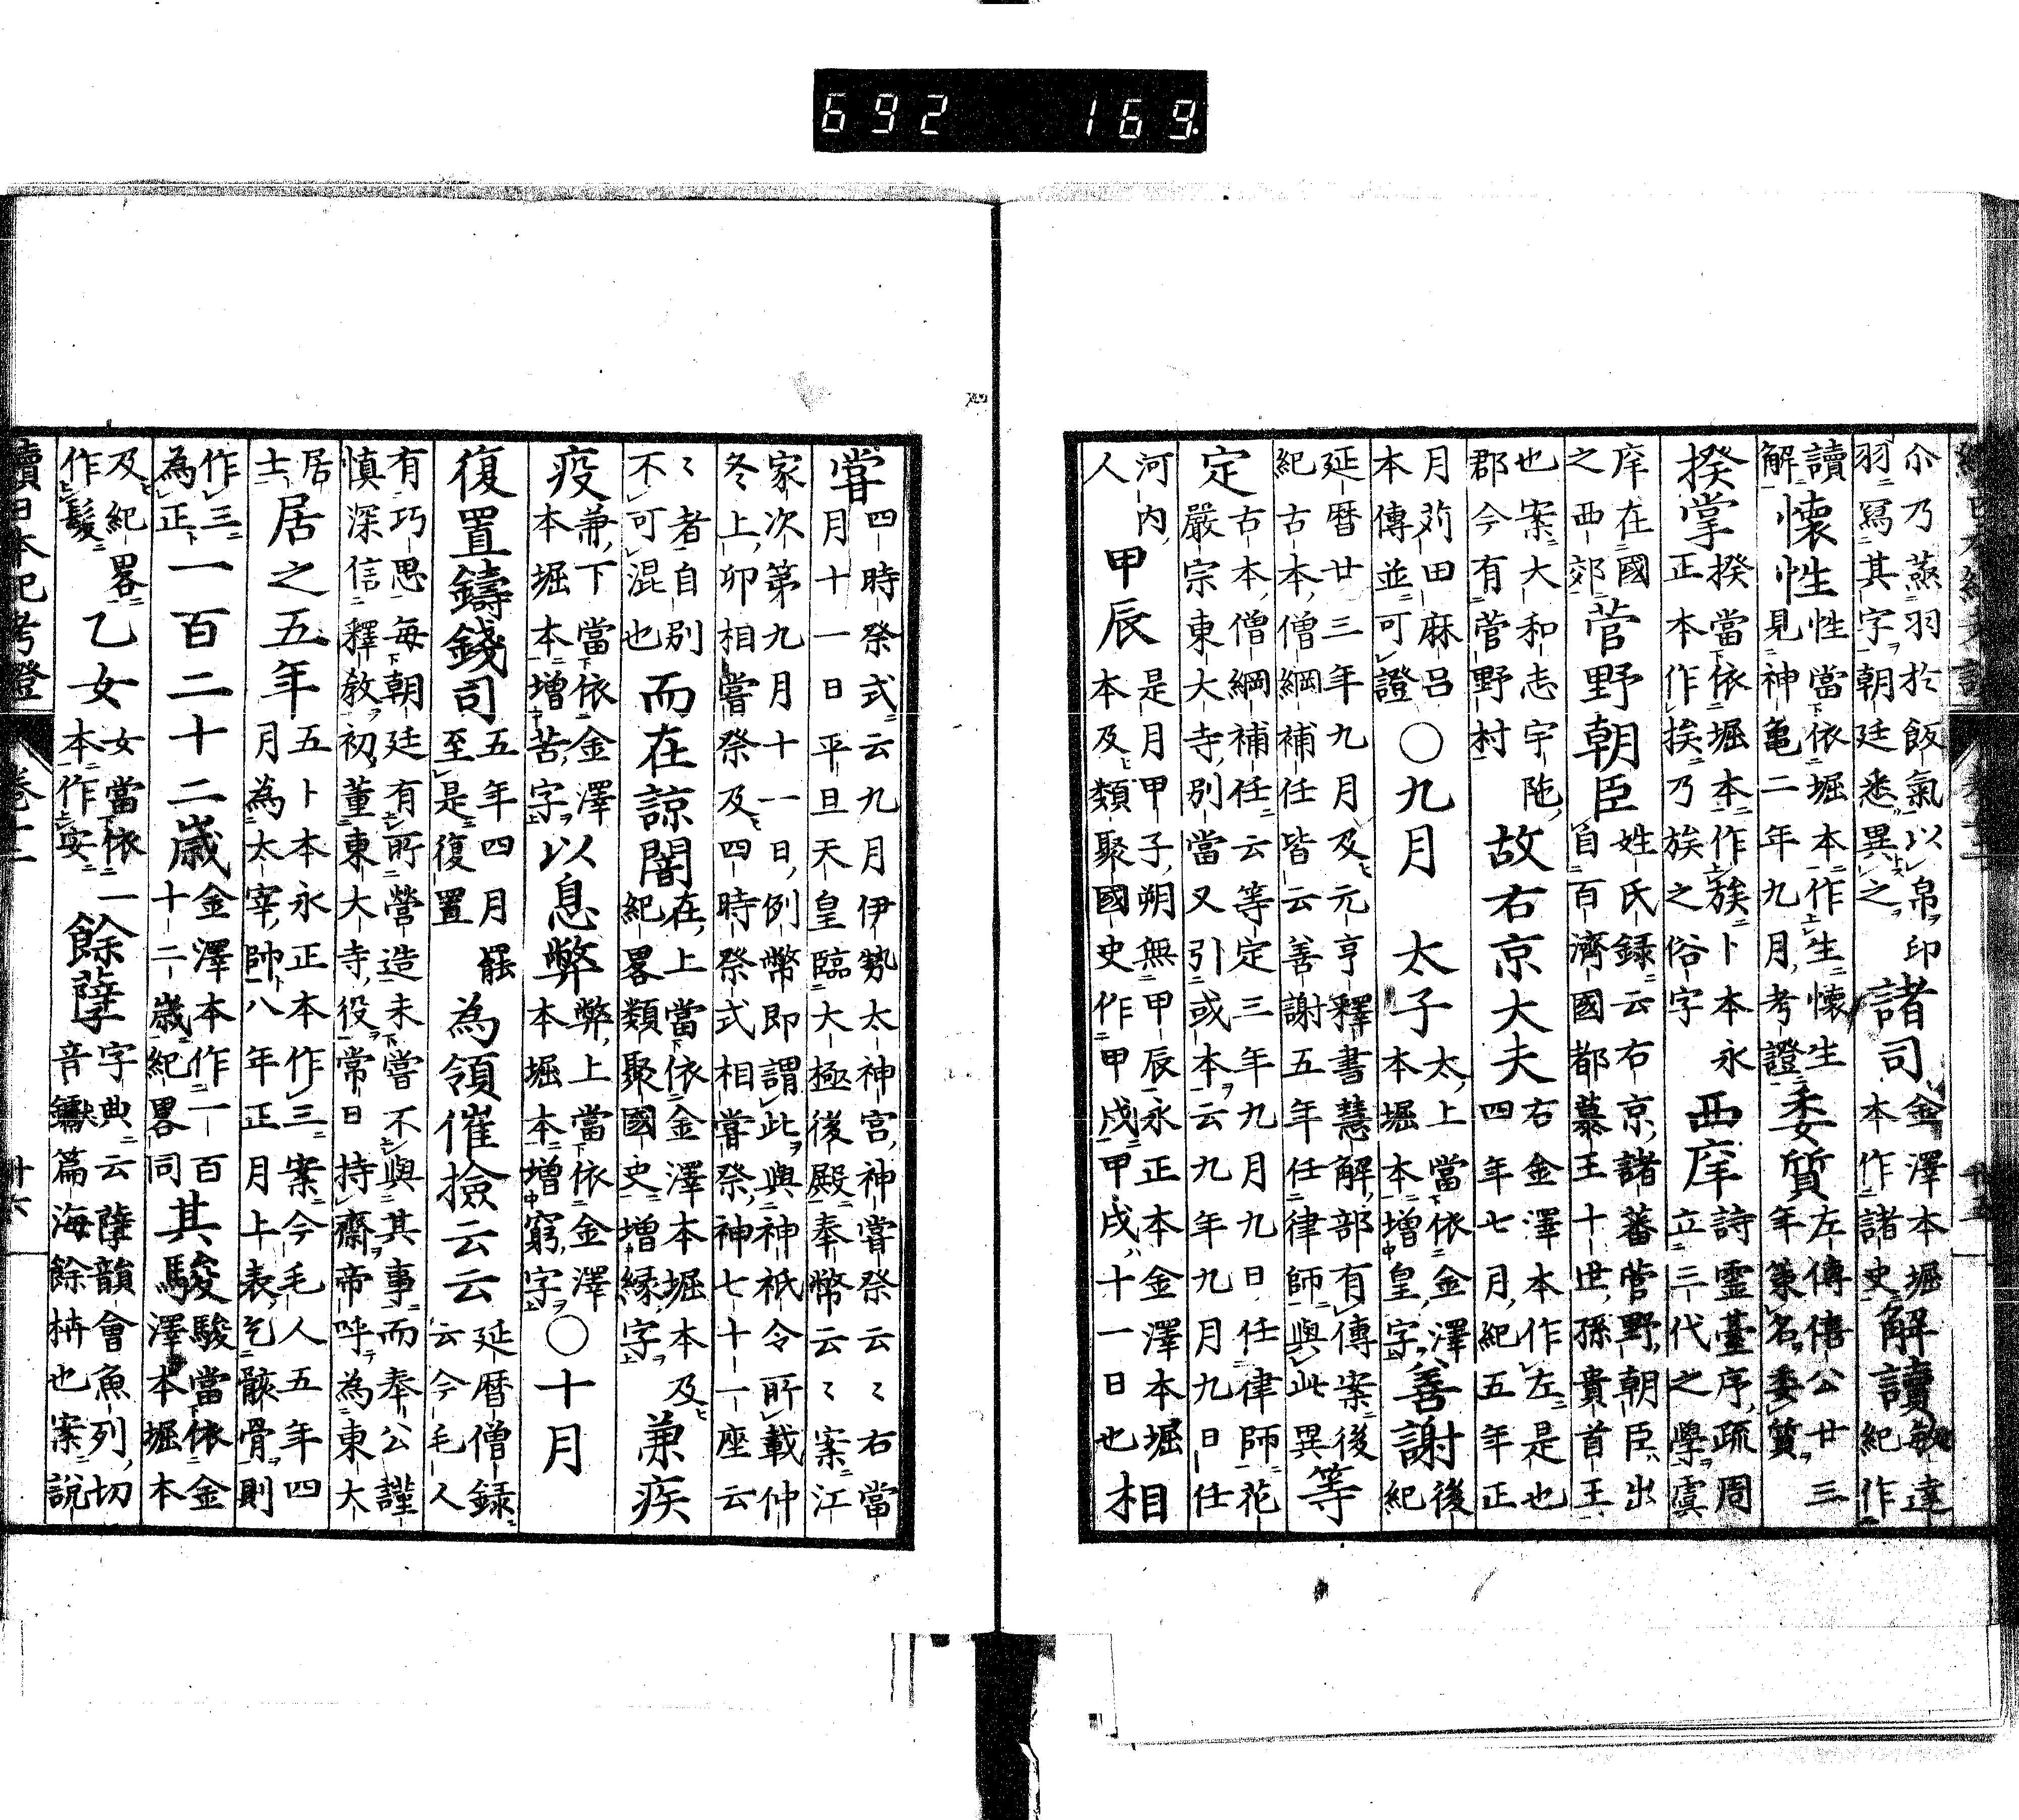 尒乃蒸羽於飯氣以帛印
羽寫其字朝廷悉異之
諸司
金澤本堀
本作諸史
解讀
敏達
紀作
讀
解
懷性
性當依堀本作生懷生
見神亀二年九月考證
委質
左傳僖公廿三
年策名委質
揆掌
揆當依堀本作族卜本永
正本作挨乃族之俗字
西庠
詩霊臺序疏周
立三代之學虞
庠在國
之西郊
菅野朝臣
姓氏録云右京諸蕃菅野朝臣出
自百濟國都慕王十世孫貴首王
也案大和志宇陁
郡今有菅野村
故右京大夫
右金澤本作左是也
四年七月紀五年正
月苅田麻呂
本傳並可證
○九月 太子
太上當依金澤
本堀本増皇字
善謝
後
紀
延暦廿三年九月及元亨釋書慧解部有傳案後
紀古本僧綱補任皆云善謝五年任律師與此異
等
定
古本僧綱補任云等定三年九月九日任律師花
嚴宗東大寺別當又引或本云九年九月九日任
河内
人
甲辰
是月甲子朔無甲辰永正本金澤本堀
本及類聚國史作甲戌甲戌十一日也
相
嘗
四時祭式云九月伊勢太神宮神嘗祭云々右當
月十一日平旦天皇臨大極後殿奉幣云々案江
家次第九月十一日例幣即謂此與神祇令所載仲
冬上卯相嘗祭及四時祭式相嘗祭神七十一座云
々者自別
不可混也
而在諒闇
在上當依金澤本堀本及
紀畧類聚國史増縁字
兼疾
疫
兼下當依金澤
本堀本増苦字
以息弊
弊上當依金澤
本堀本増窮字
○十月
復置鑄錢司
五年四月罷
至是復置
為領催撿云云
延暦僧録
云今毛人
有巧思毎朝廷有所營造未嘗不與其事而奉公謹
慎深信釋教初董東大寺役常日持齋帝呼為東大
居
士
居之五年
五卜本永正本作三案今毛人五年四
月為太宰帥八年正月上表乞骸骨則
作三
為正
一百二十二歳
金澤本作一百
十二歳紀畧同
其駿
駿當依金
澤本堀本
及紀畧
作髮
乙女
女當依一
本作安
餘孽
字典云孽韻會魚列切
音钀篇海餘枿也案説
續日本紀考證 巻十二 廿六